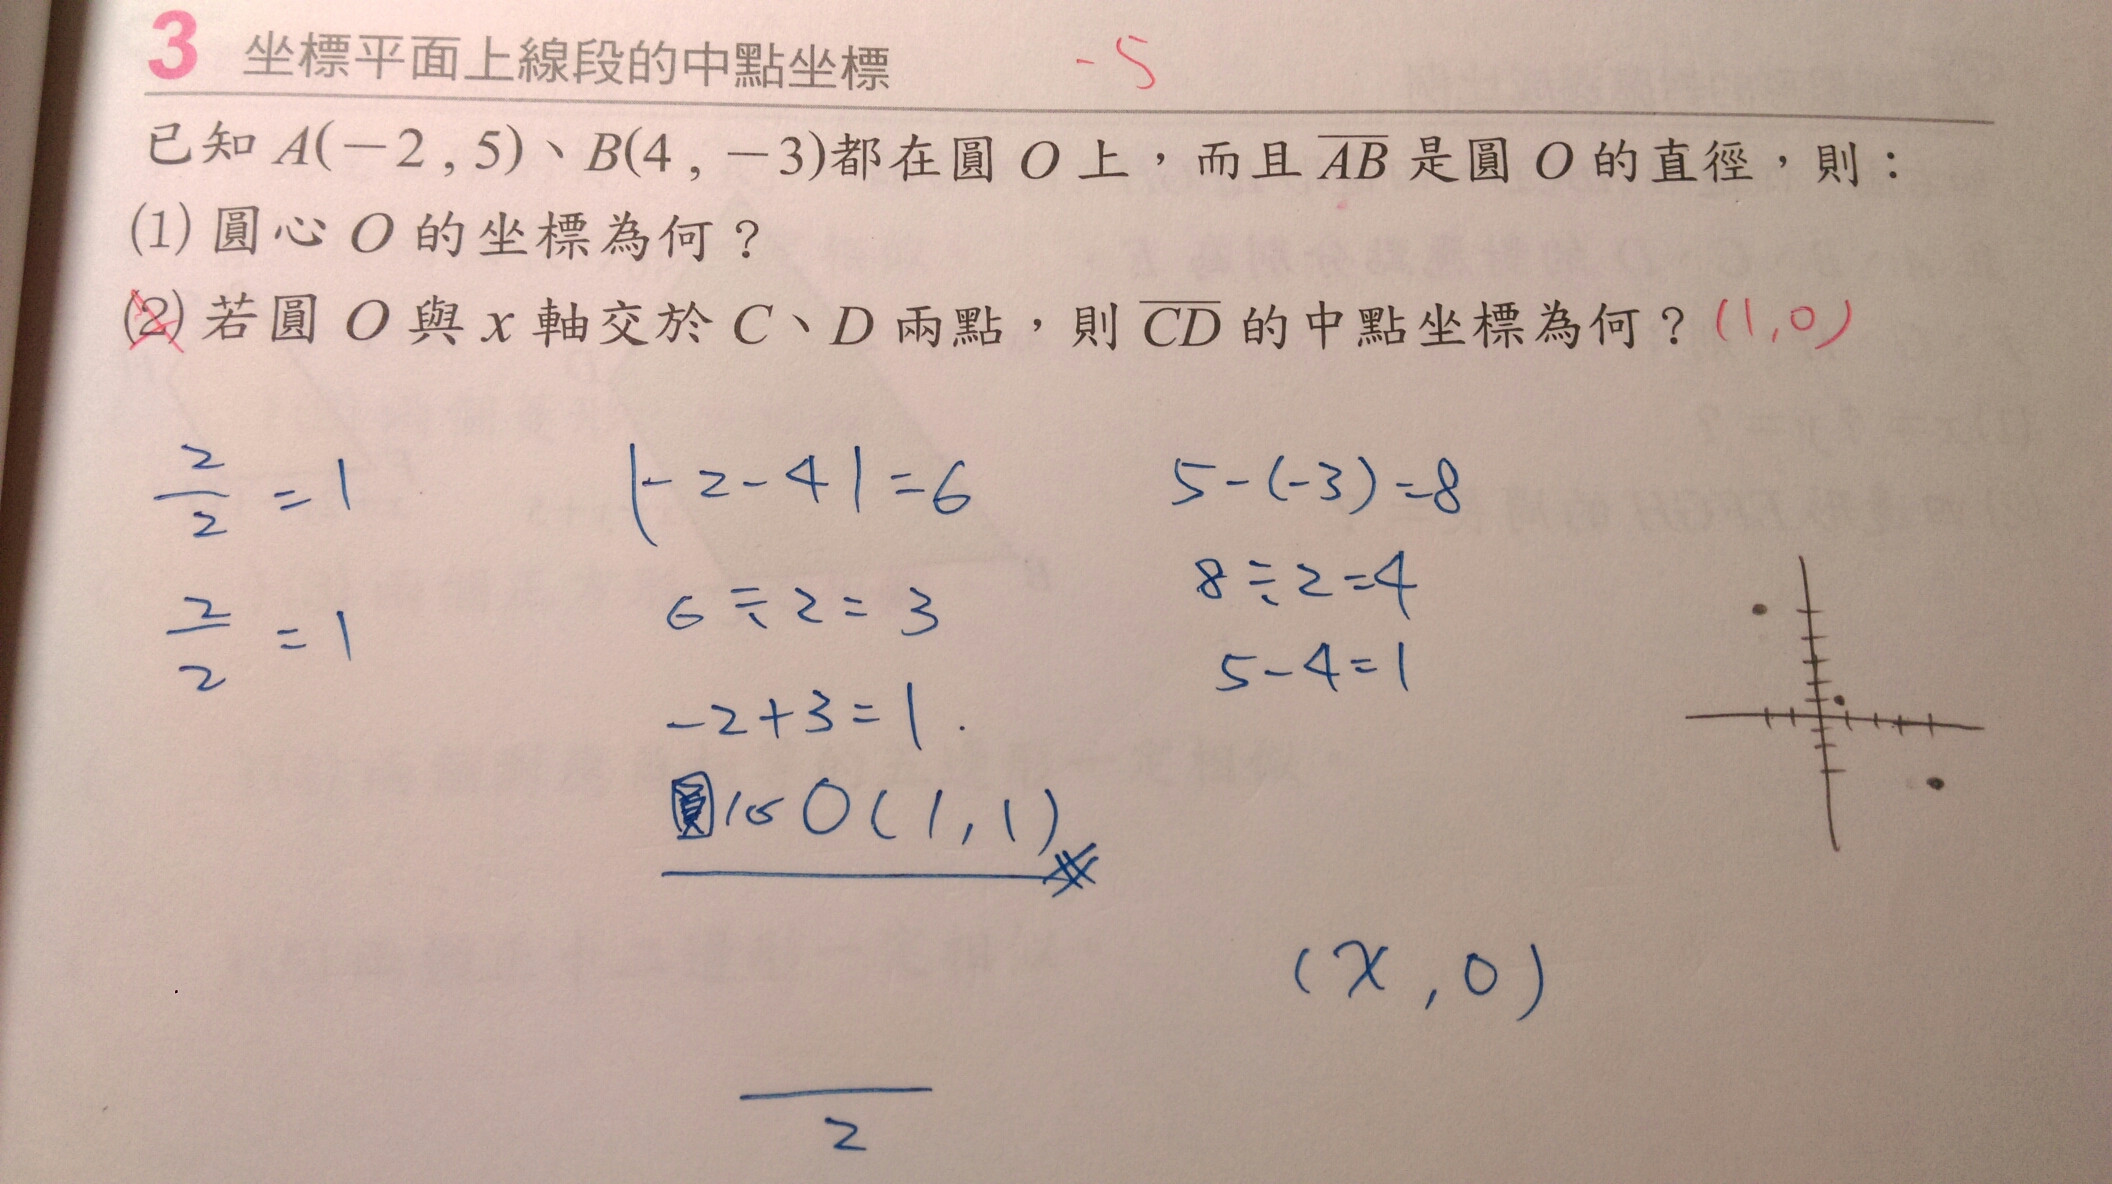 3 坐標平面上線段的中點坐標 -5
已知 A(-2 , 5)、B(4 , -3)都在圓 O 上,而且 AB 是圓 O 的直徑,則:
(1) 圓心 O 的坐標為何?
(2) 若圓 O 與 x 軸交於 C、D 兩點,則 CD 的中點坐標為何? (1,0)
2/2 = 1
|-2-4|=6
5-(-3)=8
2/2 = 1
6÷2=3
8÷2=4
-2+3=1.
5-4=1
圓心O(1,1)
(x,0)
2